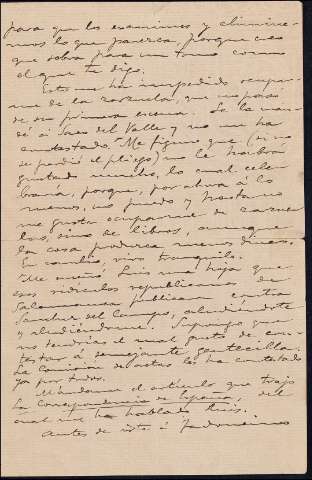 para que los examinemos y eliminare-
mos lo que parezca, porque creo
que sobra para un tomo como
el que te dije.
Esto me ha impedido ocupar-
me de la zarzuela, que no pasó
de su primera escena. Se la man-
dé á José del Valle y no me ha
contestado. Me figuro que (si no
se perdió el pliego) no le habrá
gustado mucho, lo cual cele-
braría, porque, por ahora á lo
menos, no puedo y hasta no
me gusta ocuparme de
sino de libros, aunque
la cosa produzca menos dinero.
En cambio, vivo tranquilo.
Me enseñó Luis una hoja que
esos ridículos republicanos de
Salamanca publican contra
Sánchez del Campo, aludiéndote
y aludiéndome. Supongo que
no tendrías el mal gusto de con-
testar á semejante gentecilla.
La Comisión de actas les ha contestado
ya por todos.
Mándame el artículo que trajo
La Correspondencia de España, del
cual me ha hablado Luis.
Antes de esto á